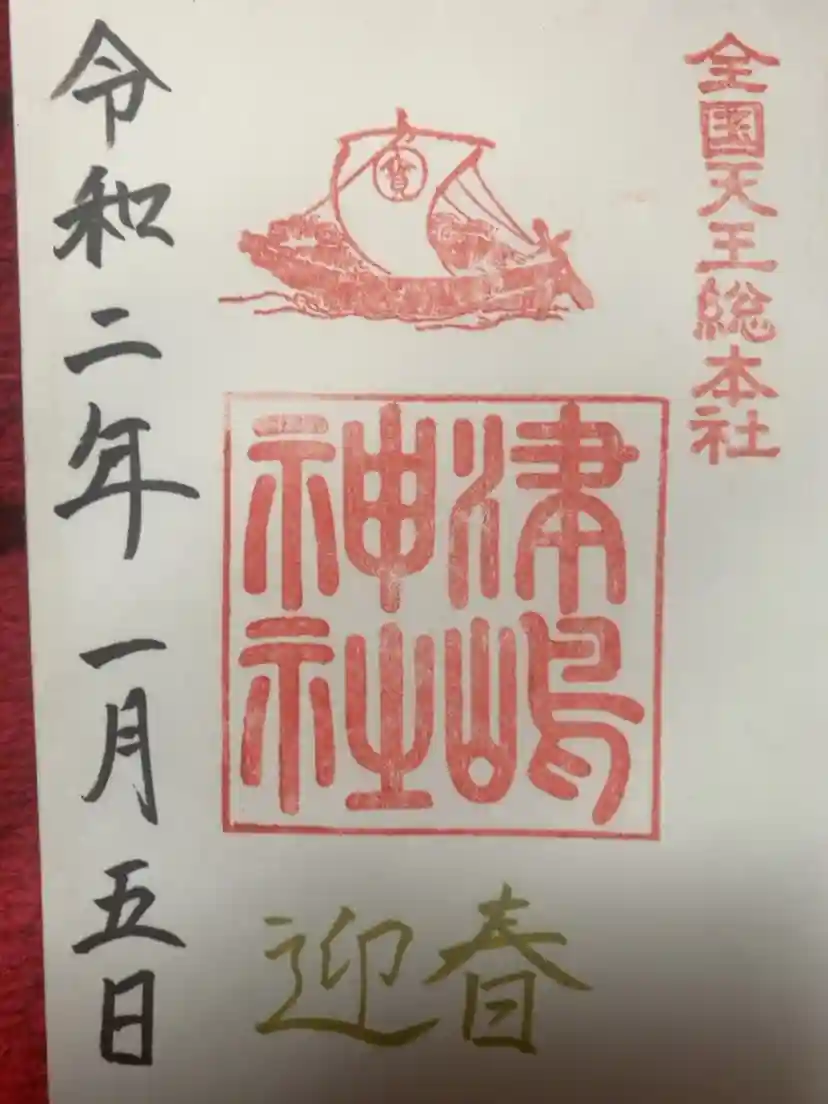 全国天王総本社
寳
津嶋
神社
迎春
令和二年一月五日